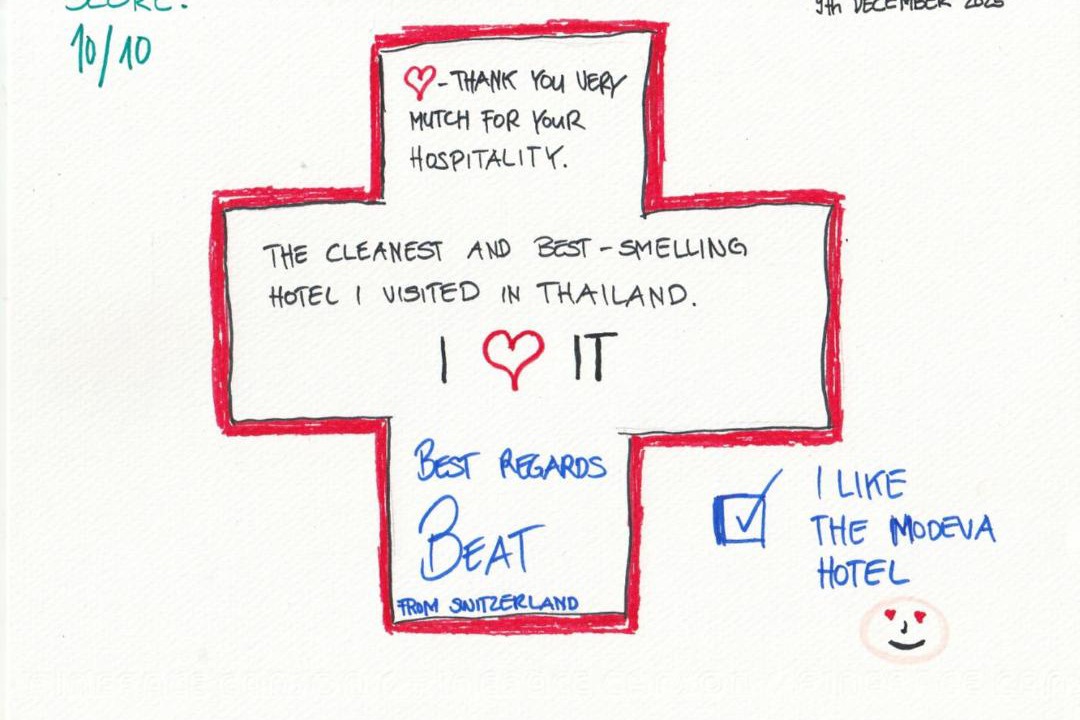 SCORE:
10/10
9th DECEMBER
♡-THANK YOU VERY
MUTCH FOR YOUR
HOSPITALITY.
THE CLEANEST AND BEST-SMELLING
HOTEL I VISITED IN THAILAND.
I ♡ IT
BEST REGARDS
BEAT
FROM SWITZERLAND
I LIKE
THE MODEVA
HOTEL